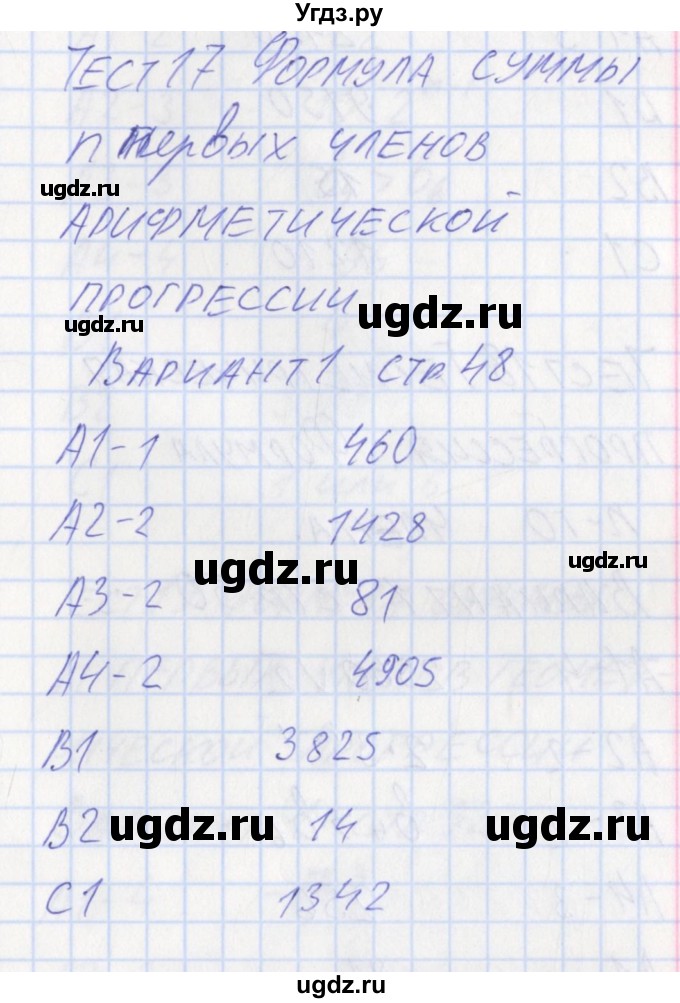 Угдз.ру
ТЕСТ 17 ФОРМУЛА СУММЫ
n первых ЧЛЕНОВ
ugdz.ru
АРИФМЕТИЧЕСКОЙ
ПРОГРЕССИИ
ugdz.ru
ugdz.ru
ВАРИАНТ 1 СТР 48
А1-1 460
А2-2 1428
ugdz.ru
А3-2 81
А4-2 4905
В1 3825
В2 14
ugdz.ru ugdz.ru
С1 1342
ugdz.ru